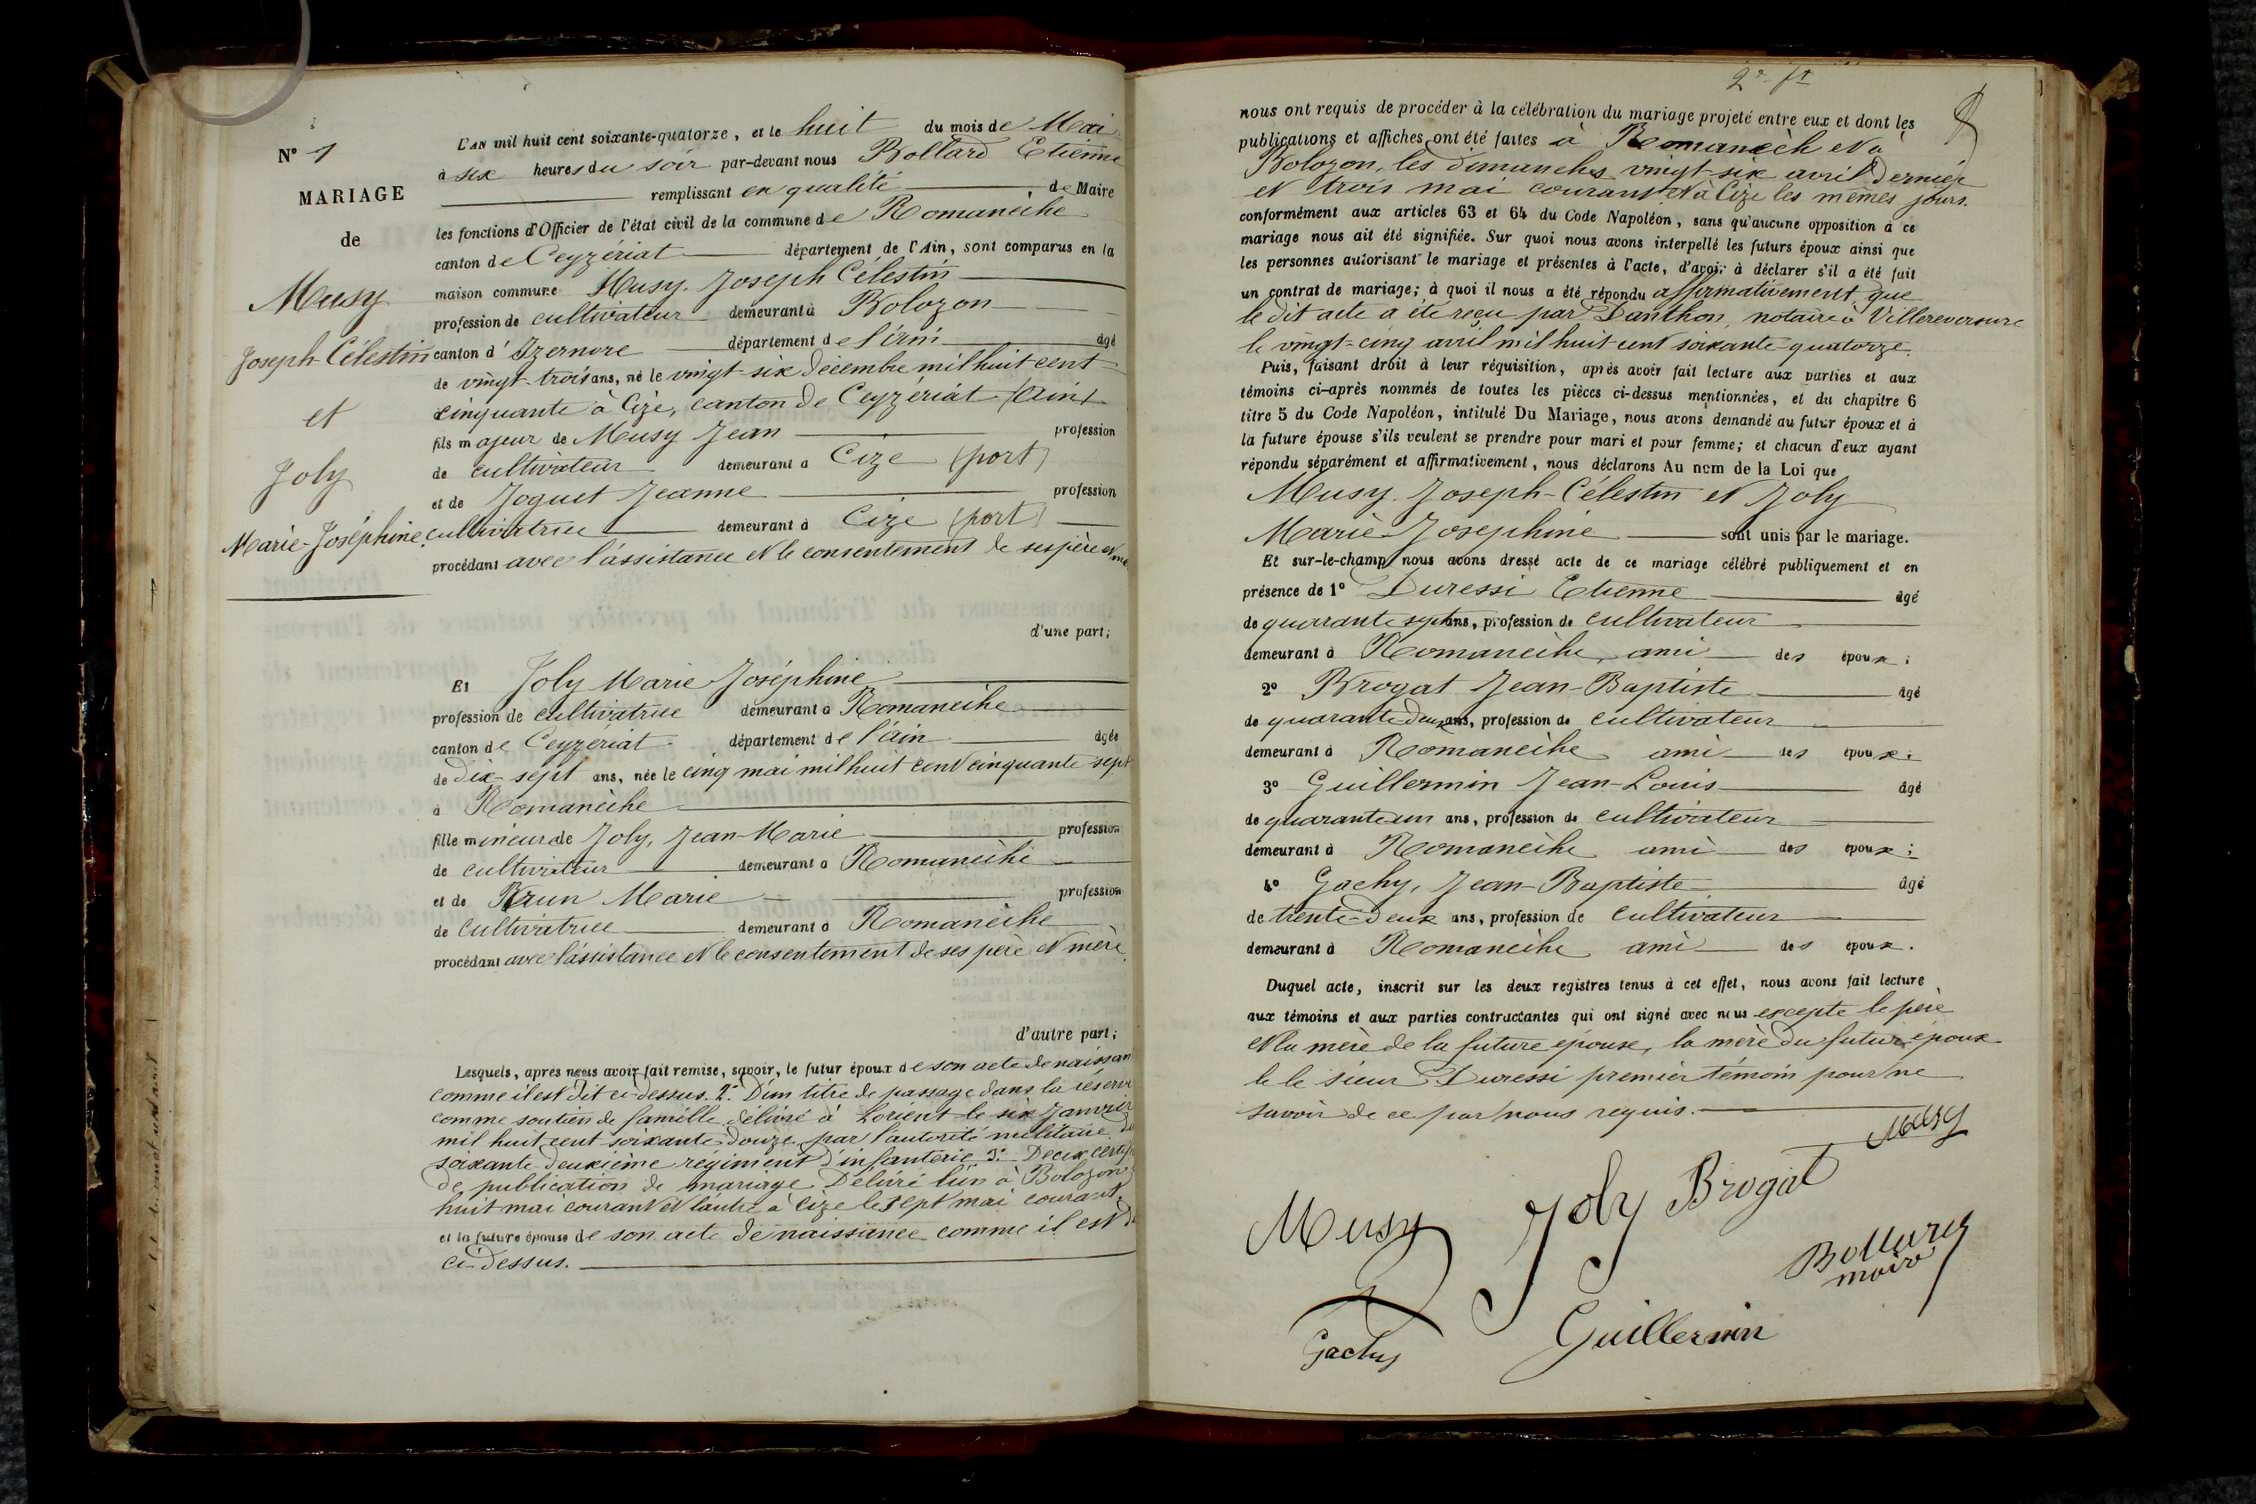 N° 1
MARIAGE
de
Musy
Joseph-Célestin
et
Joly
Marie-Joséphine.
L'AN mil huit cent soixante-quatorze, et le huit du mois de Mai
à six heures du soir par-devant nous Bollard Etienne
remplissant en qualité de Maire
les fonctions d'Officier de l'état civil de la commune de Romanèche
canton de Ceyzériat département de l'Ain, sont comparus en la
maison commune Musy Joseph Célestin
profession de cultivateur demeurant à Bolozon
canton d'Izernore département de l'Ain âgé
de vingt-trois ans, né le vingt-six décembre mil huit cent
cinquante à Cize, canton de Ceyzériat (Ain)
fils majeur de Musy Jean profession
de cultivateur demeurant à Cize (port)
et de Joguet Jeanne profession
cultivatrice demeurant à Cize (port)
procédant avec l'assistance et le consentement de ses père et me
d'une part;
Et Joly Marie Joséphine
profession de cultivatrice demeurant à Romanèche
canton de Ceyzériat département de l'Ain âgée
de dix-sept ans, née le cinq mai mil huit cent cinquante-sept
à Romanèche
fille mineure de Joly, Jean-Marie profession
de cultivateur demeurant à Romanèche
et de Brun Marie profession
de cultivatrice demeurant à Romanèche
procédant avec l'assistance et le consentement de ses père et mère
d'autre part;
Lesquels, après nous avoir fait remise, savoir, le futur époux de son acte de naissan
comme il est dit ci-dessus. 2° D'un titre de passage dans la réserve
comme soutien de famille délivré à Lorient le six Janvier
mil huit cent soixante-douze par l'autorité militaire du
soixante-deuxième régiment d'infanterie 3° Deux certif
de publication de mariage délivré l'un à Bolozon
huit mai courant et l'autre à Cize le sept mai courant.
et la future épouse de son acte de naissance comme il est d
ci-dessus.
nous ont requis de procéder à la célébration du mariage projeté entre eux et dont les
publications et affiches ont été faites à Romanèch et à
Bolozon, les dimanches vingt-six avril dernier
et trois mai courant et à Cize les mêmes jours.
conformément aux articles 63 et 64 du Code Napoléon, sans qu'aucune opposition à ce
mariage nous ait été signifiée. Sur quoi nous avons interpellé les futurs époux ainsi que
les personnes autorisant le mariage et présentes à l'acte, d'avoir à déclarer s'il a été fait
un contrat de mariage; à quoi il nous a été répondu affirmativement que
le dit acte a été reçu par Danthon, notaire à Villereversure
le vingt-cinq avril mil huit cent soixante quatorze.
Puis, faisant droit à leur réquisition, après avoir fait lecture aux parties et aux
témoins ci-après nommés de toutes les pièces ci-dessus mentionnées, et du chapitre 6
titre 5 du Code Napoléon, intitulé Du Mariage, nous avons demandé au futur époux et à
la future épouse s'ils veulent se prendre pour mari et pour femme; et chacun d'eux ayant
répondu séparément et affirmativement, nous déclarons Au nom de la Loi que
Musy Joseph-Célestin et Joly
Marie Josephine sont unis par le mariage.
Et sur-le-champ nous avons dressé acte de ce mariage célébré publiquement et en
présence de 1° Duressi Etienne âgé
de quarante sept ans, profession de cultivateur
demeurant à Romanèche, ami des époux;
2° Brogat Jean-Baptiste âgé
de quarante deux ans, profession de cultivateur
demeurant à Romanèche ami des époux;
3° Guillermin Jean-Louis âgé
de quarante un ans, profession de cultivateur
demeurant à Romanèche ami des époux;
4° Gachy, Jean-Baptiste âgé
de trente-deux ans, profession de cultivateur
demeurant à Romanèche ami des époux.
Duquel acte, inscrit sur les deux registres tenus à cet effet, nous avons fait lecture
aux témoins et aux parties contractantes qui ont signé avec nous excepte le père
et la mère de la future épouse, la mère du futur époux
le le sieur Duressi premier témoin pour ne
savoir de ce par nous requis.
Musy
Musy Joly Brogat
Bollard
maire
Gachy Guillermin